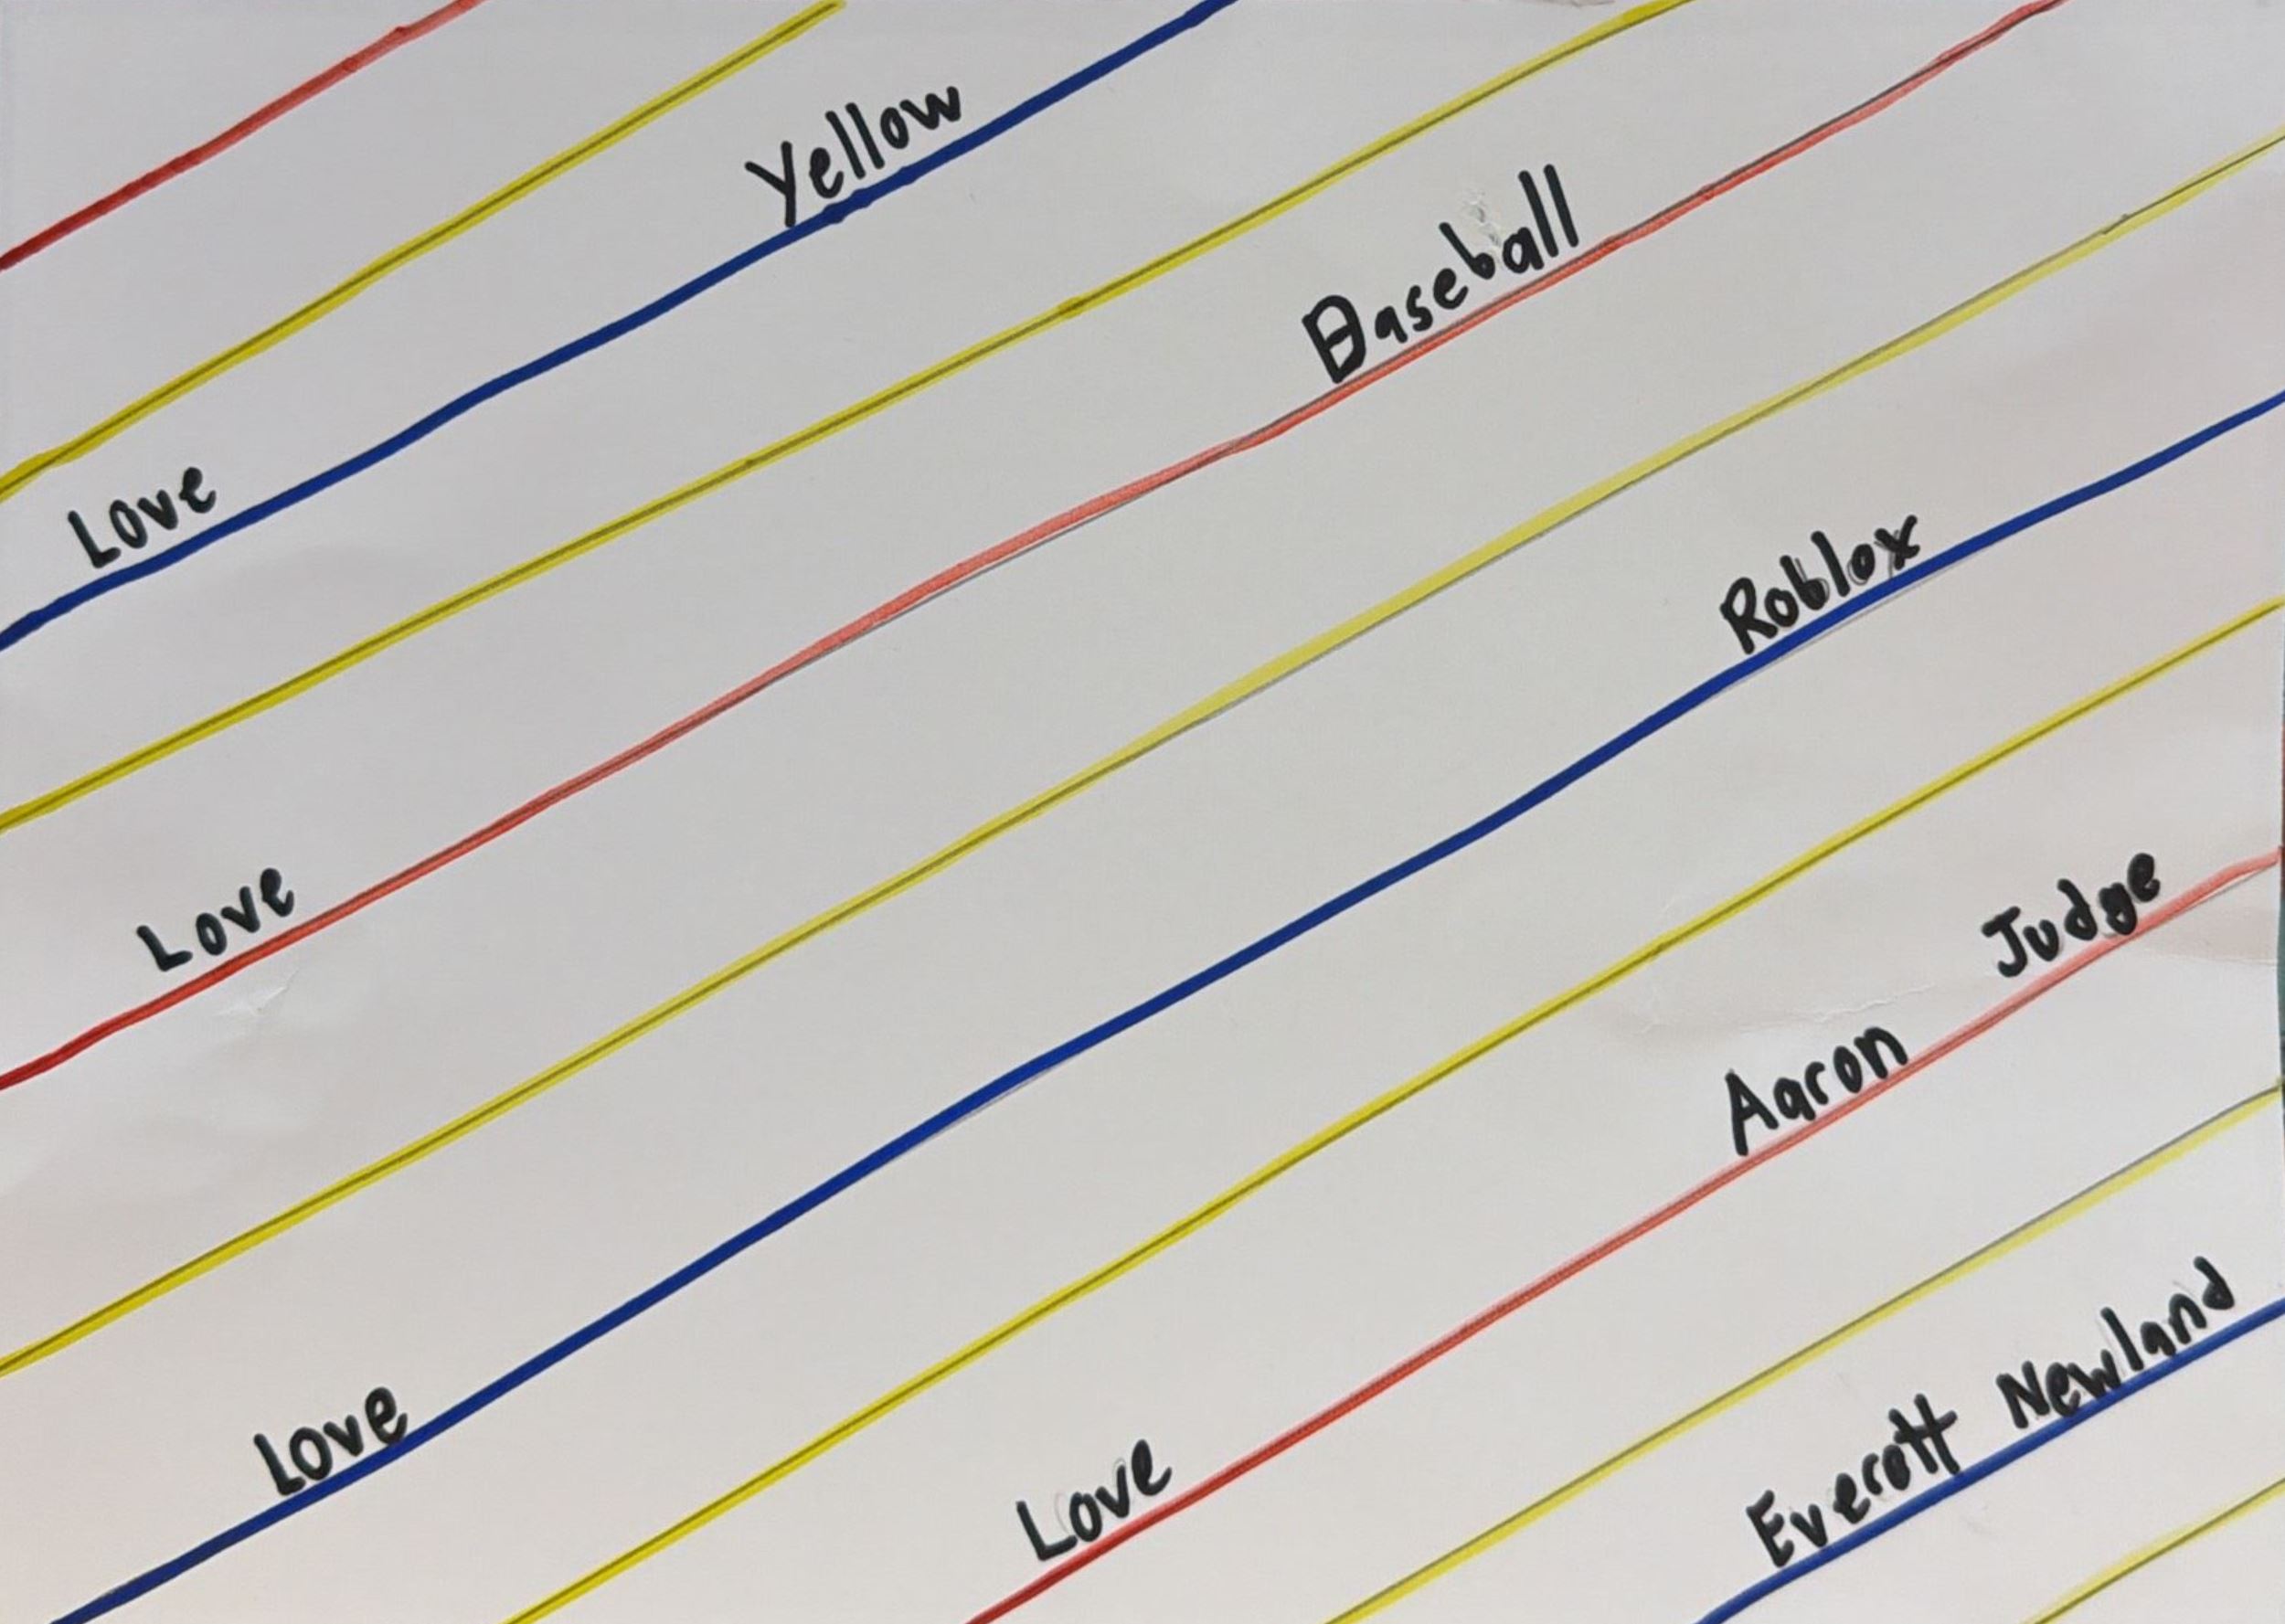 Love Yellow
Love Baseball
Love Roblox
Love Aaron Judge
Everett Newland